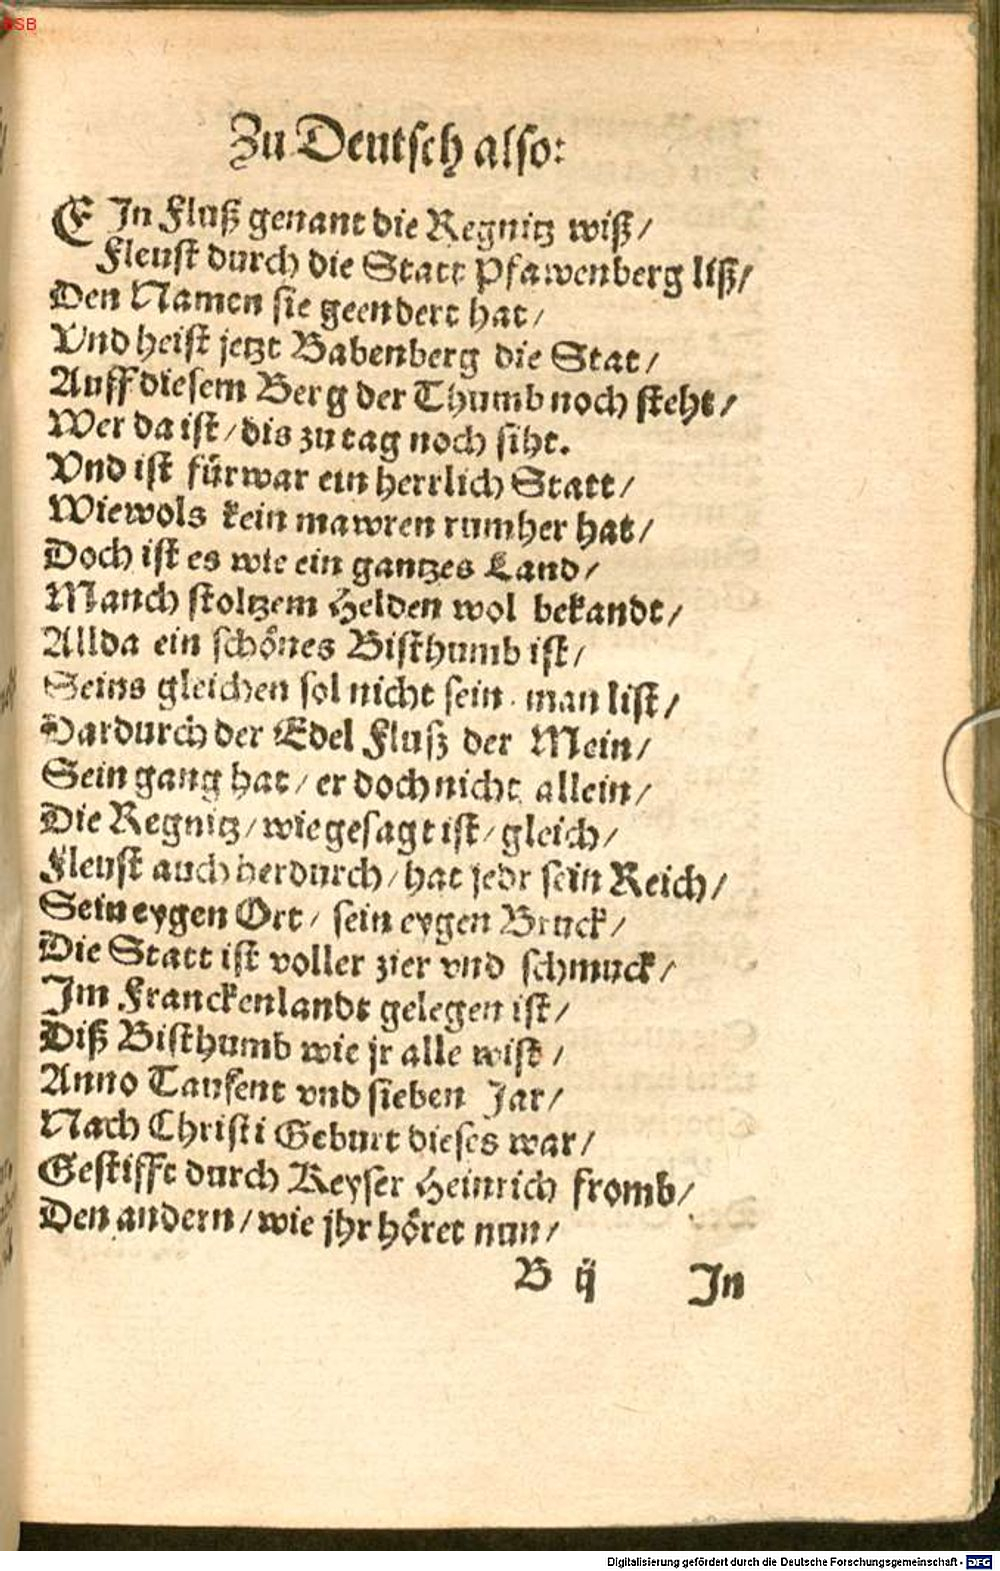 BSB
Zu Deutsch also:
EIn Fluß genant die Regnitz wiß/
Fleust durch die Statt Pfawenberg liß/
Den Namen sie geendert hat/
Vnd heist jetzt Babenberg die Stat/
Auff diesem Berg der Thumb noch steht/
Wer da ist/ dis zu tag noch siht.
Vnd ist fürwar ein herrlich Statt/
Wiewols kein mawren rumher hat/
Doch ist es wie ein gantzes Land/
Manch stoltzem Helden wol bekandt/
Allda ein schönes Bisthumb ist/
Seins gleichen sol nicht sein man list/
Dardurch der Edel Fluß der Mein/
Sein gang hat/ er doch nicht allein/
Die Regnitz/ wie gesagt ist/ gleich/
Fleust auch herdurch/ hat jedr sein Reich/
Sein eygen Ort/ sein eygen Bruck/
Die Statt ist voller zier vnd schmuck/
Im Franckenlandt gelegen ist/
Diß Bisthumb wie jr alle wist/
Anno Tausent vnd sieben Jar/
Nach Christi Geburt dieses war/
Gestifft durch Keyser Heinrich fromb/
Den andern/ wie jhr höret nun/
B ij In
Digitalisierung gefördert durch die Deutsche Forschungsgemeinschaft - DFG